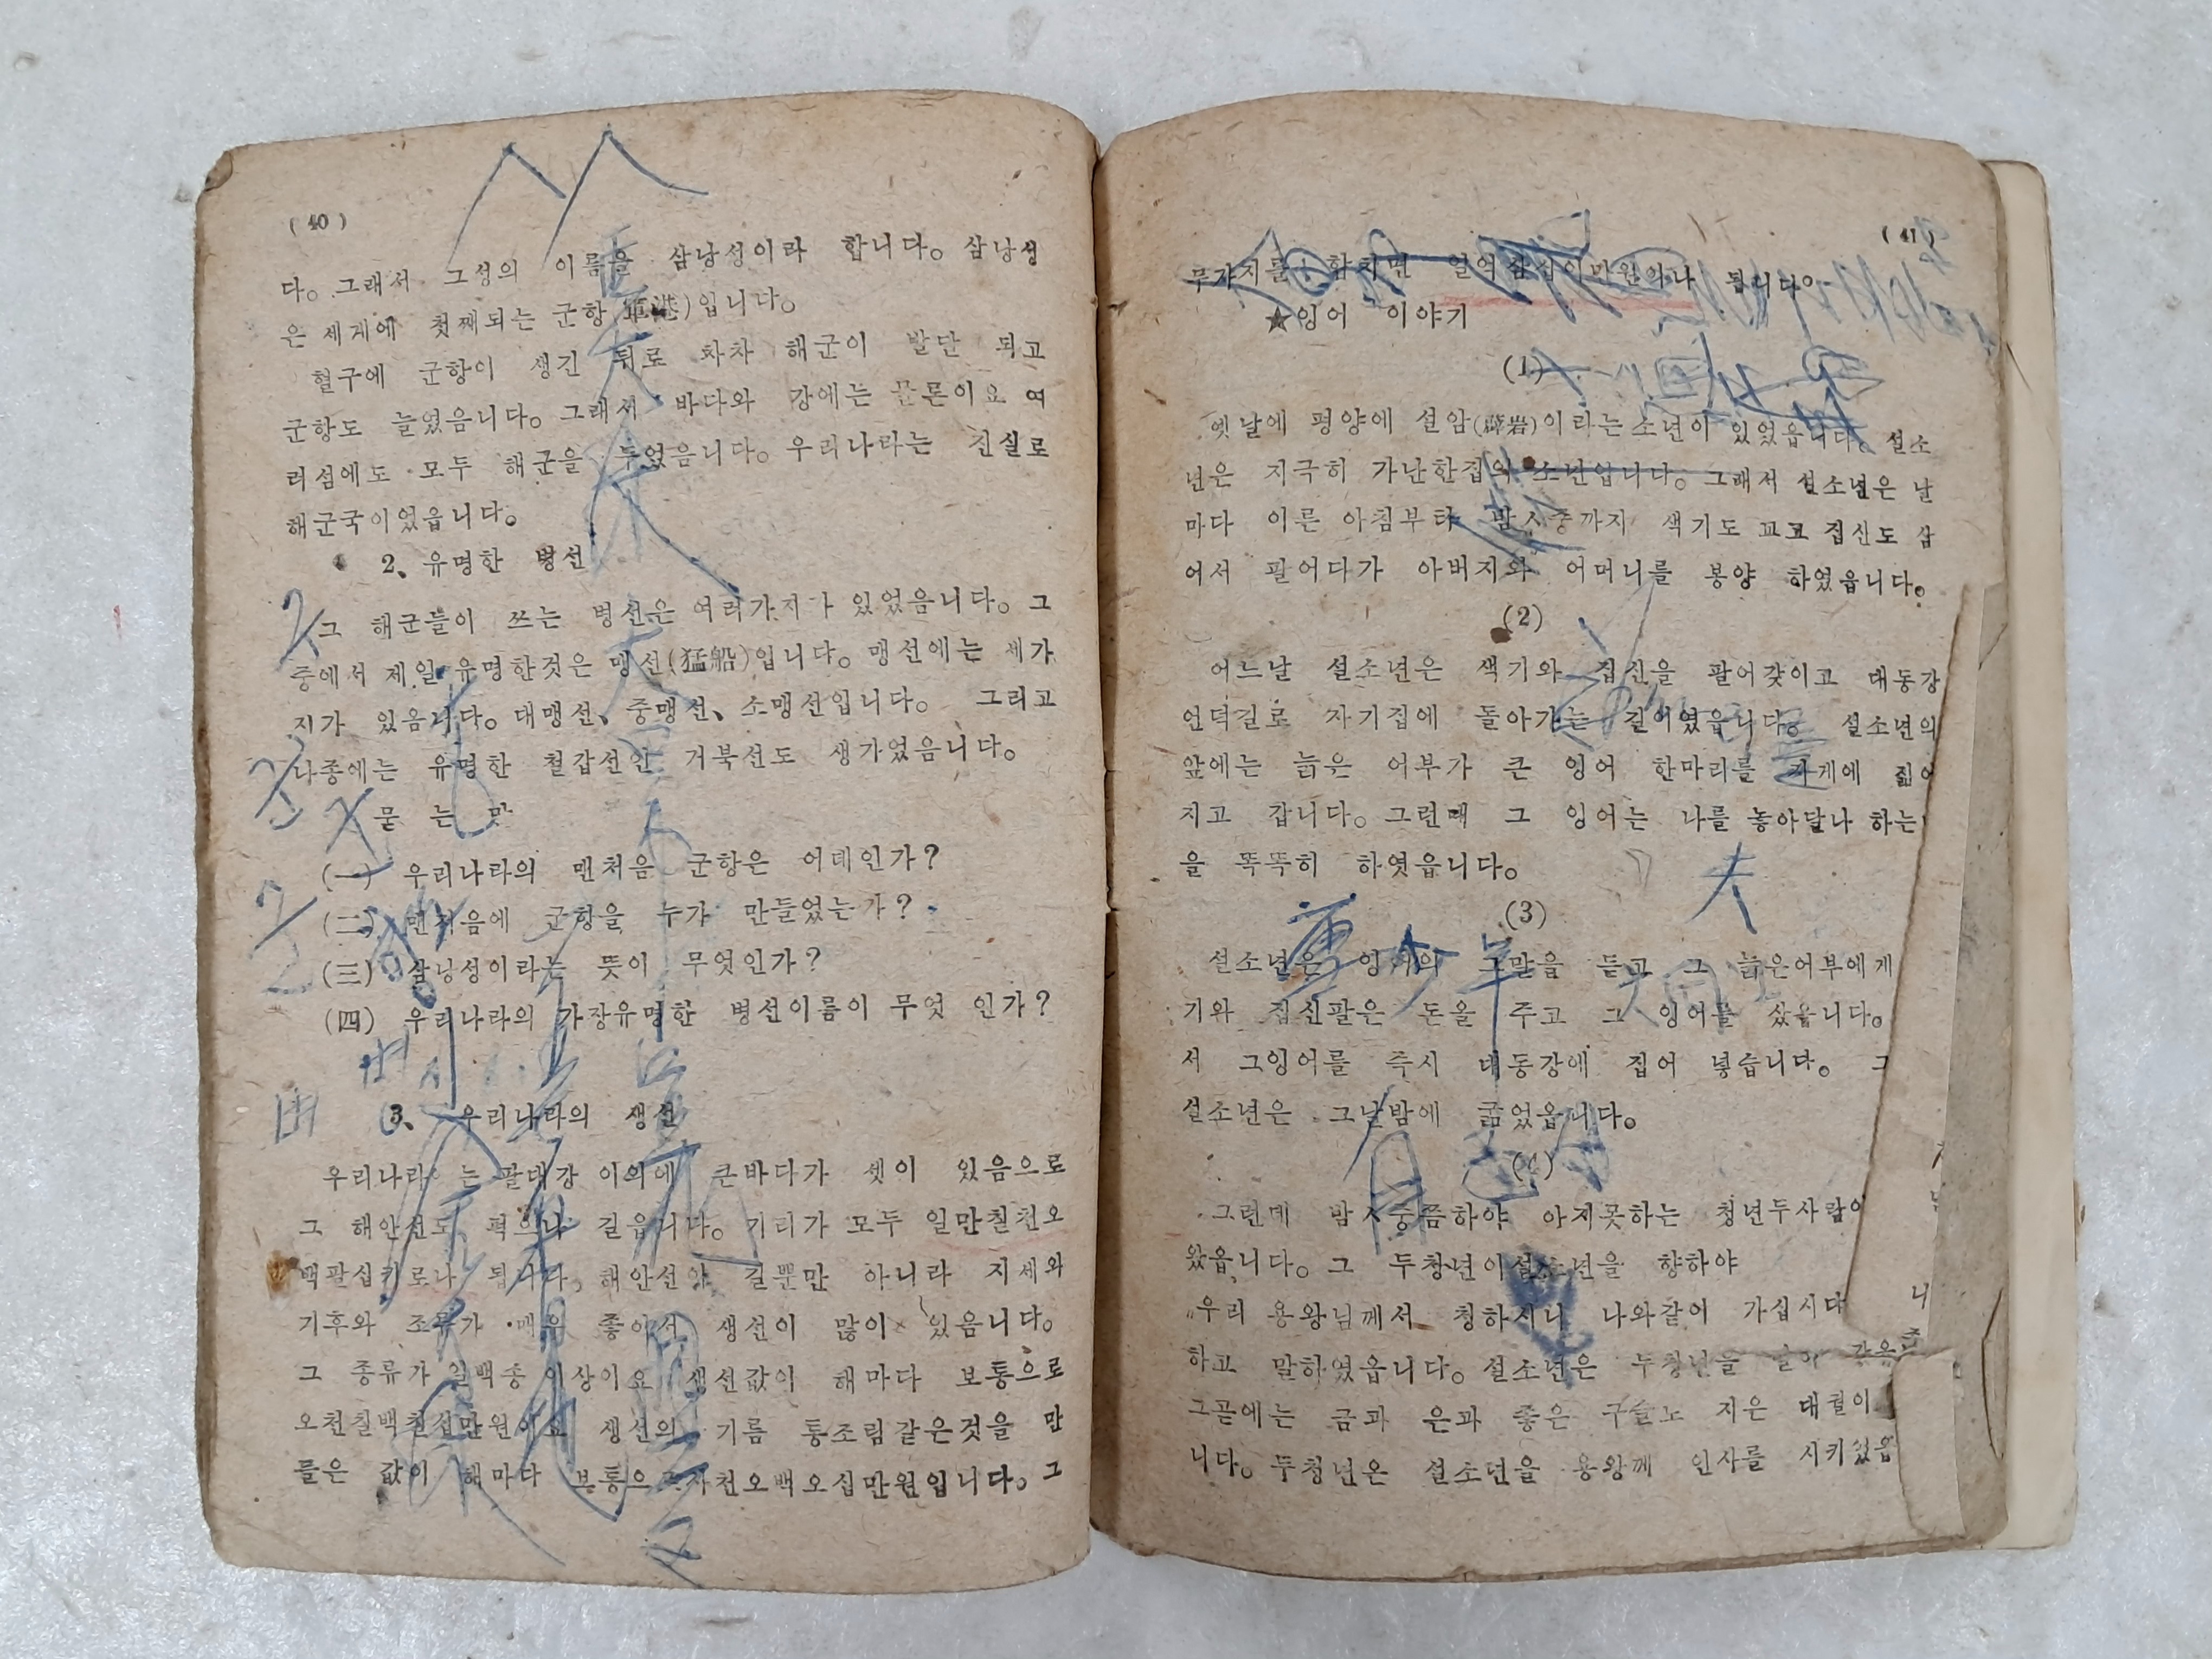 (40)
다。그래서 그성의 이름을 삼낭성이라 합니다。삼낭성
은 세게에 첫째되는 군항(軍港)입니다。
혈구에 군항이 생긴 뒤로 차차 해군이 발단 되고
군항도 늘었음니다。그래서 바다와 강에는 물론이요 여
러섬에도 모두 해군을 두었음니다。우리나라는 진실로
해군국이었읍니다。
2、유명한 병선
그 해군들이 쓰는 병선은 여러가지가 있었음니다。그
중에서 제일 유명한것은 맹선(猛船)입니다。맹선에는 세가
지가 있음니다。대맹선、중맹선、소맹선입니다。 그리고
나종에는 유명한 철갑선인 거북선도 생가었음니다。
묻 는 맛
(一) 우리나라의 맨처음 군항은 어데인가?
(二) 맨처음에 군항을 누가 만들었는가?
(三) 삼낭성이라는 뜻이 무엇인가?
(四) 우리나라의 가장유명한 병선이름이 무엇 인가?
3、 우리나라의 생선
우리나라 는 팔대강 이외에 큰바다가 셋이 있음으로
그 해안선도 퍽으나 길읍니다。기리가 모두 일만칠천오
백팔십키로나 됩니다, 해안선이 길뿐만 아니라 지세와
기후와 조류가 매우 좋아서 생선이 많이 있음니다。
그 종류가 일백송 이상이요 생선값이 해마다 보통으로
오천칠백칠십만원이요 생선의 기름 통조림같은것을 만
들은 값이 해마다 보통으로사천오백오십만원입니다。그
(41)
합치면 일억삼십이만원이나 됩니다。
★잉어 이야기
(1)
옛날에 평양에 설암(薛岩)이라는 소년이 있었읍니다。설소
년은 지극히 가난한집의 소년입니다。그래서 설소년은 날
마다 이른 아침부터 밤ㅅ중까지 색기도 꼬고 집신도 삼
어서 팔어다가 아버지와 어머니를 봉양 하였읍니다。
(2)
어느날 설소년은 색기와 집신을 팔어갖이고 대동강
언덕길로 자기집에 돌아가는 길이였읍니다。 설소년의
앞에는 늙은 어부가 큰 잉어 한마리를 지게에 짊어
지고 갑니다。그런데 그 잉어는 나를 놓아달나 하는
을 똑똑히 하엿읍니다。
(3)
설소년은 잉어의 그말을 듣고 그 늙은어부에게
기와 집신팔은 돈을 주고 그 잉어를 샀읍니다。
서 그잉어를 즉시 대동강에 집어 넣습니다。 그
설소년은 그날밤에 굶었읍니다。
(4)
그런데 밤ㅅ중쯤하야 아지못하는 청년두사람이
왔읍니다。그 두청년이설소년을 향하야
우리 용왕님께서 청하시니 나와같이 가십시다
하고 말하였읍니다。설소년은 두청년을
그곧에는 금과 은과 좋은 구슬노 지은 대궐이
니다。두청년은 설소년을 용왕께 인사를 시키였읍